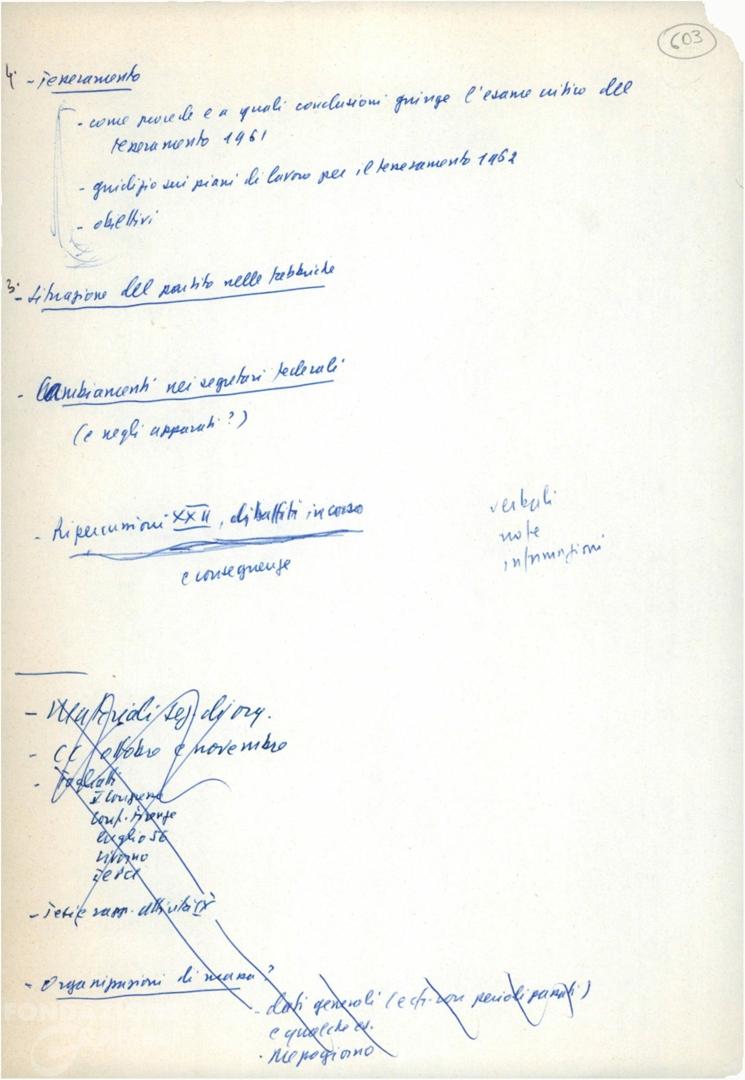 603
4. - Tesseramento
- come procede e a quali conclusioni giunge l'esame critico del
tesseramento 1961
- giudizio sui piani di lavoro per il tesseramento 1962
- obiettivi
3. - Situazione del partito nelle fabbriche
- Cambiamenti nei segretari federali
(e negli apparati?)
- Ripercussioni XXII, dibattiti in corso
e conseguenze
verbali
note
informazioni
- Materiali sez. di org.
- CC ottobre e novembre
- Togliatti
V Congresso
Conf. Firenze
luglio 56
Livorno
- Tesi e rapp. attività IX
- Organizzazioni di massa?
- dati generali (e
e qualche es.
- Mezzogiorno